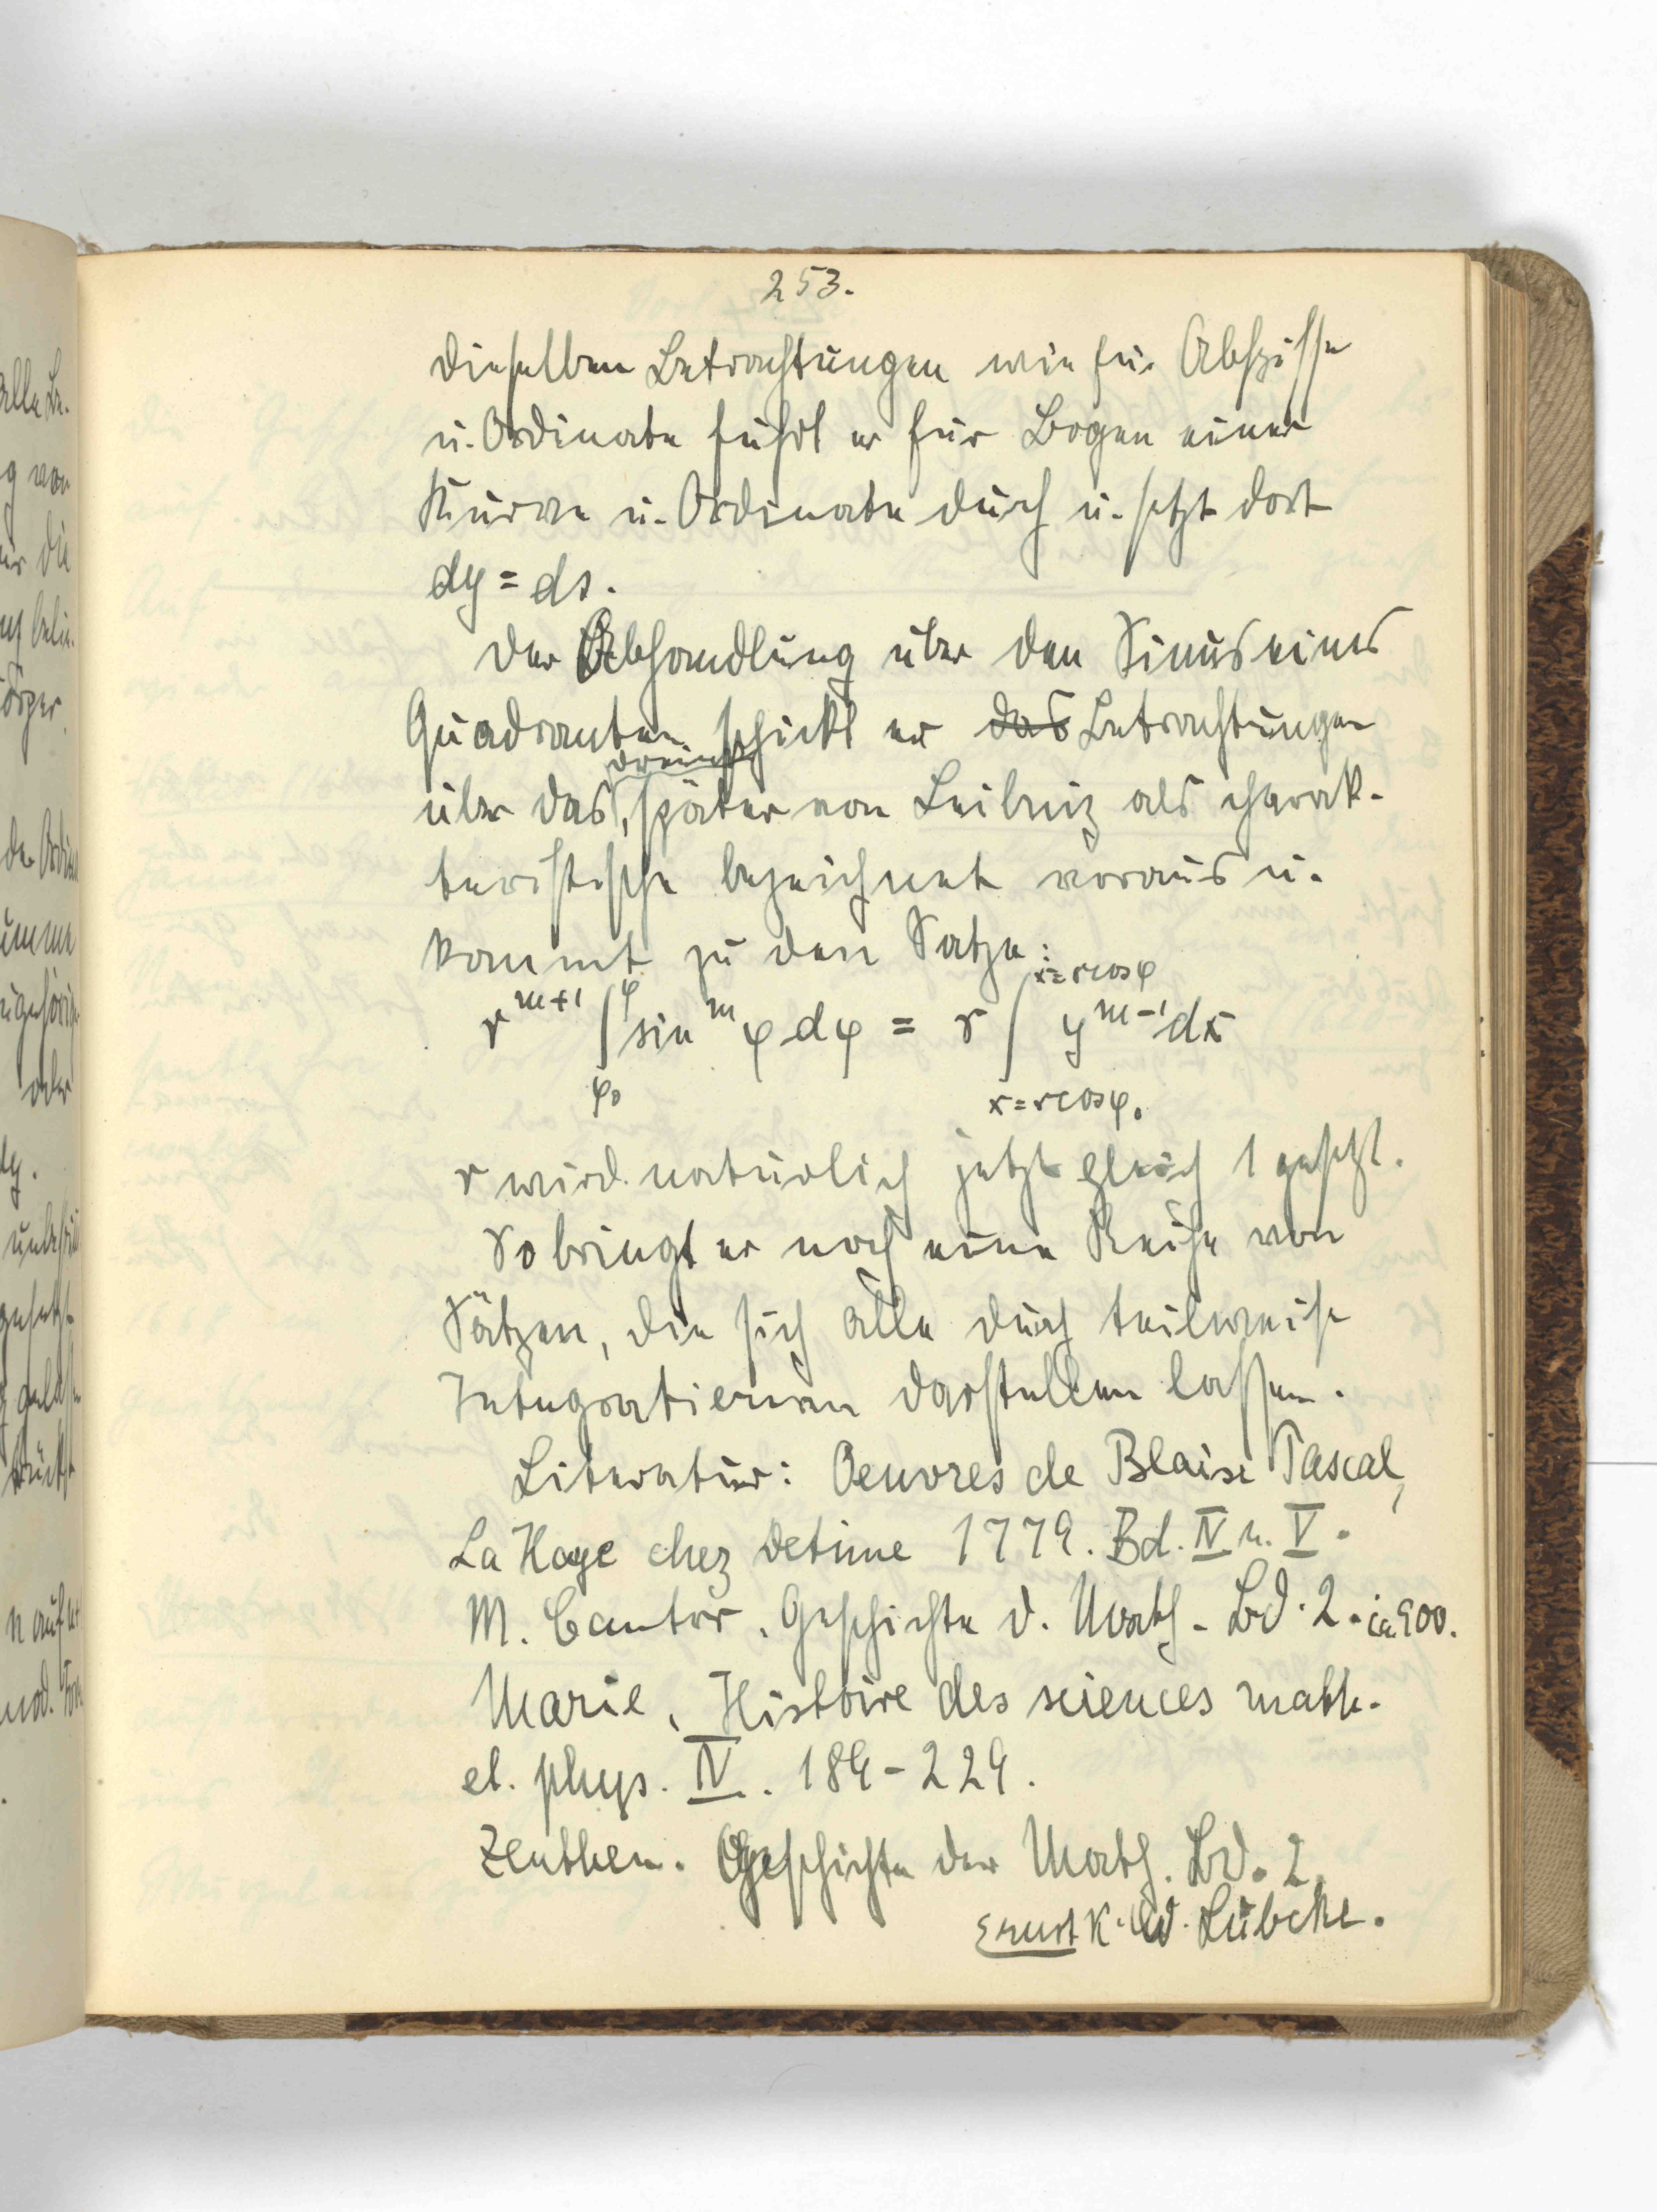 253.
dieselben Betrachtungen wie für Abszisse
u. Ordinate führt er für Bogen einer
Kurve u. Ordinate durch u. setzt dort
dy = ds.
Der Abhandlung über den Sinus eines
Quadranten schickt er das Betrachtungen
dreieck
über das, später von Leibniz als charak-
teristische bezeichnet voraus u.
kommt zu den Satze:
r^{m+1} ∫_{φ₀}^{φ} sin^m φ dφ = r ∫_{x=r cos φ₀}^{x=r cos φ} y^{m-1} dx
r wird natürlich jetzt gleich 1 gesetzt.
So bringt er noch eine Reihe von
Sätzen, die sich alle durch teilweise
Integrationen darstellen lassen.
Literatur: Oeuvres de Blaise Pascal,
La Haye chez Detune 1779. Bd. IV u. V.
M. Cantor, Geschichte d. Math. Bd. 2. ca. 900.
Marie, Histoire des sciences math.
et. phys. IV. 184-229.
Zeuthen. Geschichte der Math. Bd. 2.
Ernst K. W. Lübcke.
alle Be-
g von
die
den Ordi
umme
oder
dy.
gesetzt
n auf
mod.